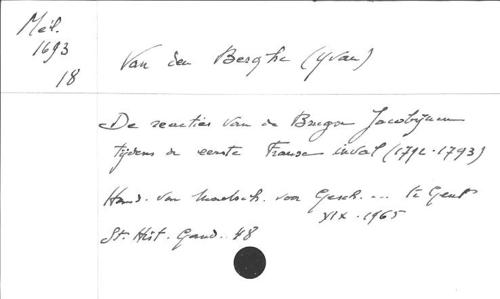 Mél.
1693
18
Van den Berghe (Yvan)
De reacties van de Brugse Jacobijnen
tijdens de eerste Franse inval (1792-1793)
Hand. van Maatsch. voor Gesch. ... te Gent
XIX. 1965
St. Hist. Gand. 48